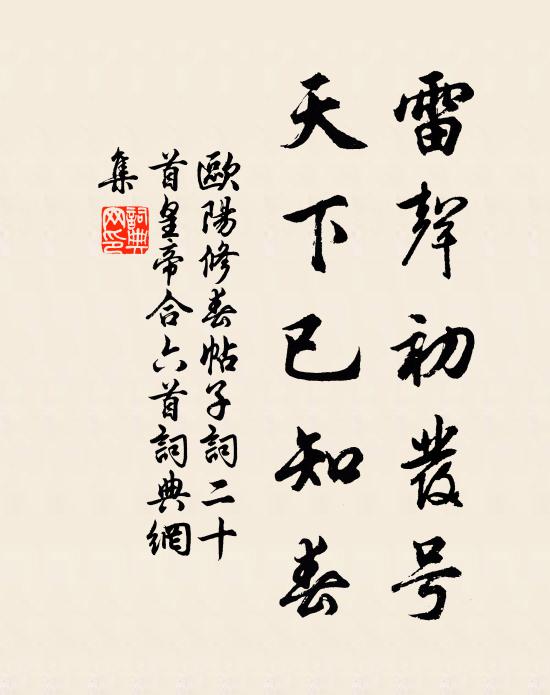 雷聲初發号
天下已知春
歐陽修春帖子詞二十
首皇帝合六首詞典網
集
詞典
网印